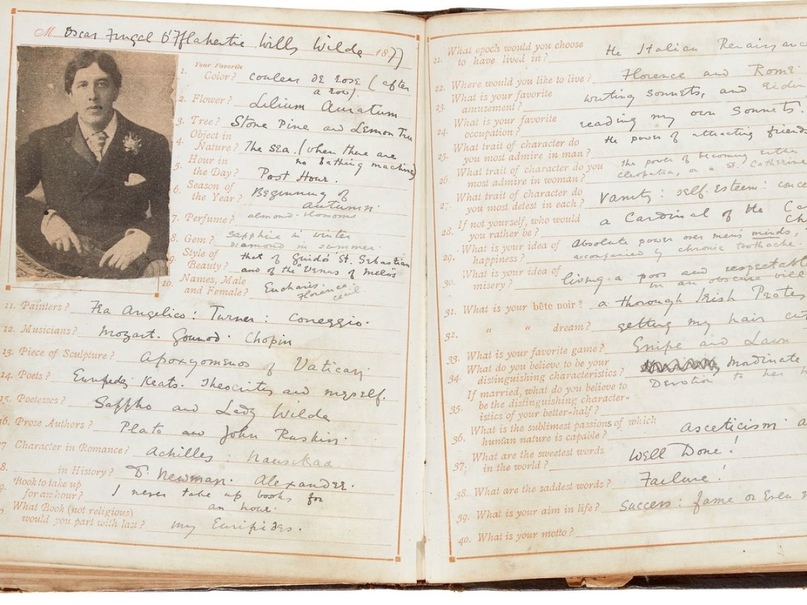 M Oscar Fingal O'Flahertie Wills Wilde 1877
Your Favorite
1. Color? couleur de rose (after
a row)
2. Flower? Lilium Auratum
3. Tree? Stone Pine and Lemon Tree
4. Object in
Nature? The sea. (when there are
no bathing machines)
5. Hour in
the Day? Post Hour.
6. Season of
the Year? Beginning of
autumn.
7. Perfume? almond-blossoms
8. Gem? sapphire in winter
diamond in summer.
9. Style of
Beauty? that of Guido's St. Sebastian
and of the Venus of Melos
10. Names, Male
and Female? Eucharis:
Florence
Cecil
11. Painters? Fra Angelico: Turner: Correggio.
12. Musicians? Mozart. Gounod. Chopin
13. Piece of Sculpture? Apoxyomenos of Vatican
14. Poets? Euripides Keats. Theocritus and myself.
15. Poetesses? Sappho and Lady Wilde
16. Prose Authors? Plato and John Ruskin.
17. Character in Romance? Achilles: Nausikaa
18. in History? Dr Newman. Alexander.
Book to take up
for an hour? I never take up books for
an hour.
What Book (not religious)
would you part with last? my Euripides.
21. What epoch would you choose
to have lived in? the Italian Renaissance
22. Where would you like to live? Florence and Rome.
23. What is your favorite
amusement? writing sonnets, and
24. What is your favorite
occupation? reading my own sonnets.
25. What trait of character do
you most admire in man? the power of attracting friends
26. What trait of character do you
most admire in woman? the power of becoming either
Cleopatra, or a St. Catherine
27. What trait of character do
you most detest in each? Vanity: self-esteem:
28. If not yourself, who would
you rather be? a Cardinal of the
29. What is your idea of
happiness? absolute power over men's minds,
accompanied by chronic toothache.
30. What is your idea of
misery? living a poor and respectable
in an obscure
31. What is your bête noire? a thorough Irish
32. " " dream? getting my hair cut
33. What is your favorite game? Snipe and Lawn
34. What do you believe to be your
distinguishing characteristics? inordinate
35. If married, what do you believe to
be the distinguishing character-
istics of your better-half? Devotion to her
36. What is the sublimest passion of which
human nature is capable? asceticism.
37. What are the sweetest words
in the world? Well Done!
38. What are the saddest words? Failure!
39. What is your aim in life? Success: fame or even
40. What is your motto?